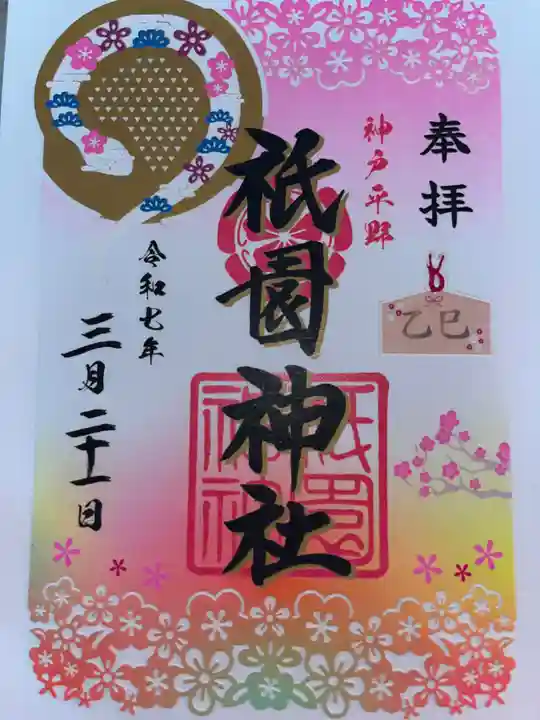 奉拝
乙巳
神戸平野
祇園神社
祇園
神社
令和七年
三月二十一日